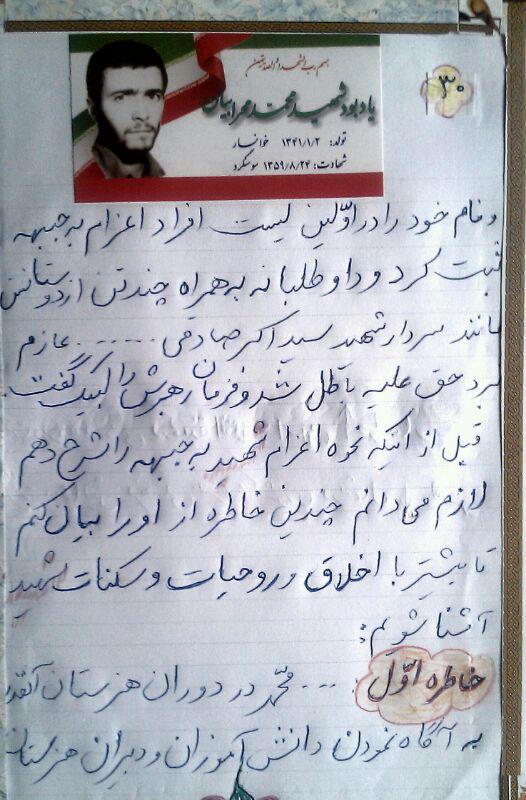 ۳۰
بسم رب الشهدا و الصدیقین
یادبود شهید محمد محرابیان
تولد: ۱۳۴۱/۱/۲ خوانسار
شهادت: ۱۳۵۹/۸/۲۴ سوسنگرد
و نام خود را در اوّلین لیست افراد اعزام به جبهه
ثبت کرد و داوطلبانه به همراه چندتن از دوستانش
مانند سردار شهید سید اکبر صادقی ....... عازم
نبرد حق علیه باطل شد و فرمان رهبرش را لبیک گفت.
قبل از اینکه نحوه اعزام شهید به جبهه را شرح دهم
لازم می دانم چندین خاطره از او را بیان کنم
تا بیشتر با اخلاق و روحیات و سکنات شهید
آشنا شویم:
خاطره اوّل .... محمّد در دوران هنرستان آنقدر
به آگاه نمودن دانش آموزان و دبیران هنرستان